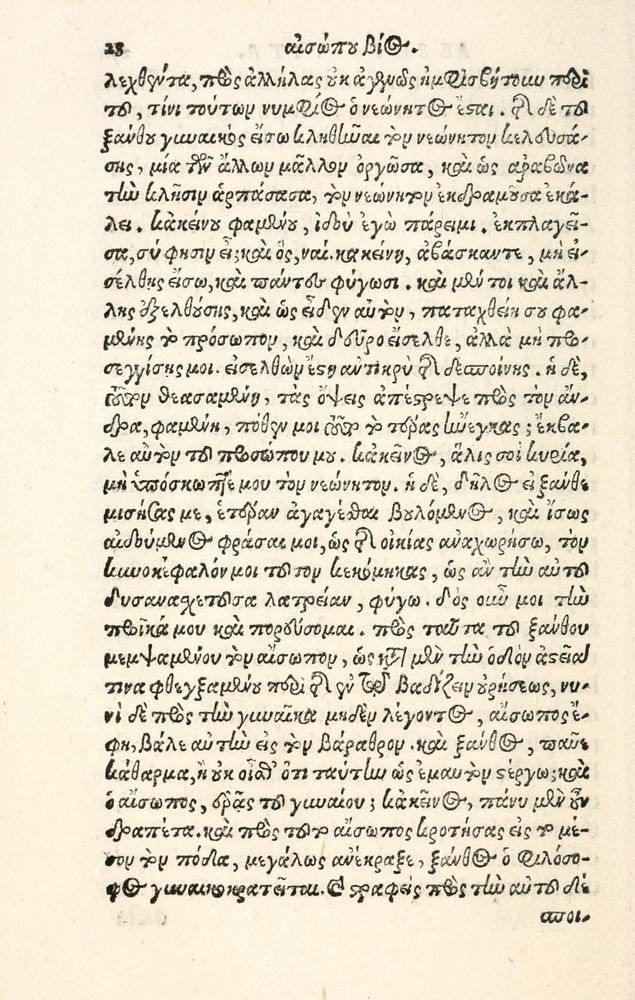 28 αἰσώπου βίος.
λεχθέντα, πρὸς ἀλλήλας οὐκ ἀγεννῶς ἠμφισβήτουν περὶ
του, τίνι τούτων νυμφίος ὁ νεώνητος ἔσται. τῆς δὲ τοῦ
ξάνθου γυναικὸς εἴσω κληθῆναι τὸν νεώνητον κελευσά-
σης, μία τῶν ἄλλων μᾶλλον ὀργῶσα, καὶ ὡς ἀραβῶνα
τὴν κλῆσιν ἁρπάσασα, τὸν νεώνητον ἐκδραμοῦσα ἐκά-
λει. κἀκείνου φαμένου, ἰδοὺ ἐγὼ πάρειμι. ἐκπλαγεῖ-
σα, σύ φησιν εἶ; καὶ ὅς, ναί. κακείνη, ἀβάσκαντε, μὴ εἰ-
σέλθῃς εἴσω, καὶ πάντες φύγωσι. καὶ μέν τοι καὶ ἄλ-
λης ἐξελθούσης, καὶ ὡς εἶδεν αὐτὸν, παταχθείη σου φα-
μένης τὸ πρόσωπον, καὶ δεῦρο εἴσελθε, ἀλλὰ μὴ προ-
σεγγίσῃς μοι. εἰσελθὼν ἔστη αντικρὺ τῆς δεσποίνης. ἡ δὲ,
τοῦτον θεασαμένη, τὰς ὄψεις ἀπέστρεψε πρὸς τὸν ἄν-
δρα, φαμένη, πόθεν μοι τοῦτο τὸ τέρας ἤνεγκας; ἔκβα-
λε αὐτὸν τοῦ προσώπου μου. κἀκεῖνος, ἅλις σοὶ κυρία,
μὴ ὑπόσκωπτέ μου τὸν νεώνητον. ἡ δὲ, δῆλος εἶ ξάνθε
μισήσας με, ἑτέραν ἀγαγέσθαι βουλόμενος, καὶ ἴσως
αἰδούμενος φράσαι μοι, ὡς τῆς οἰκίας ἀναχωρήσω, τὸν
κυνοκέφαλόν μοι τοῦτον κεκόμικας, ὡς ἂν τὴν αὐτοῦ
δυσανασχετοῦσα λατρείαν, φύγω. δὸς οὖν μοι τὴν
προῖκά μου καὶ πορεύσομαι. πρὸς ταῦτα τοῦ ξάνθου
μεμψαμένου τὸν αἴσωπον, ὡς κατὰ μὲν τὴν ὁδὸν ἀστεῖά
τινα φθεγξαμένου περὶ τῆς ἐν τῷ βαδίζειν οὐρήσεως, νυ-
νὶ δὲ πρὸς τὴν γυναῖκα μηδὲν λέγοντος, αἴσωπος ἔ-
φη, βάλε αὐτὴν εἰς τὸν βάραθρον. καὶ ξάνθος, παῦε
κάθαρμα, ἢ οὐκ οἶσθ' ὅτι ταύτην ὡς ἐμαυτὸν στέργω; καὶ
ὁ αἴσωπος, ἐρᾷς τοῦ γυναίου; κἀκεῖνος, πάνυ μὲν οὖν
δραπέτα. καὶ πρὸς τοῦτο αἴσωπος κροτήσας εἰς τὸ μέ-
σον τὸν πόδα, μεγάλως ἀνέκραξε, ξάνθος ὁ φιλόσο-
φος γυναικοκρατεῖται. καὶ στραφεὶς πρὸς τὴν αὐτοῦ δέ
σποι-